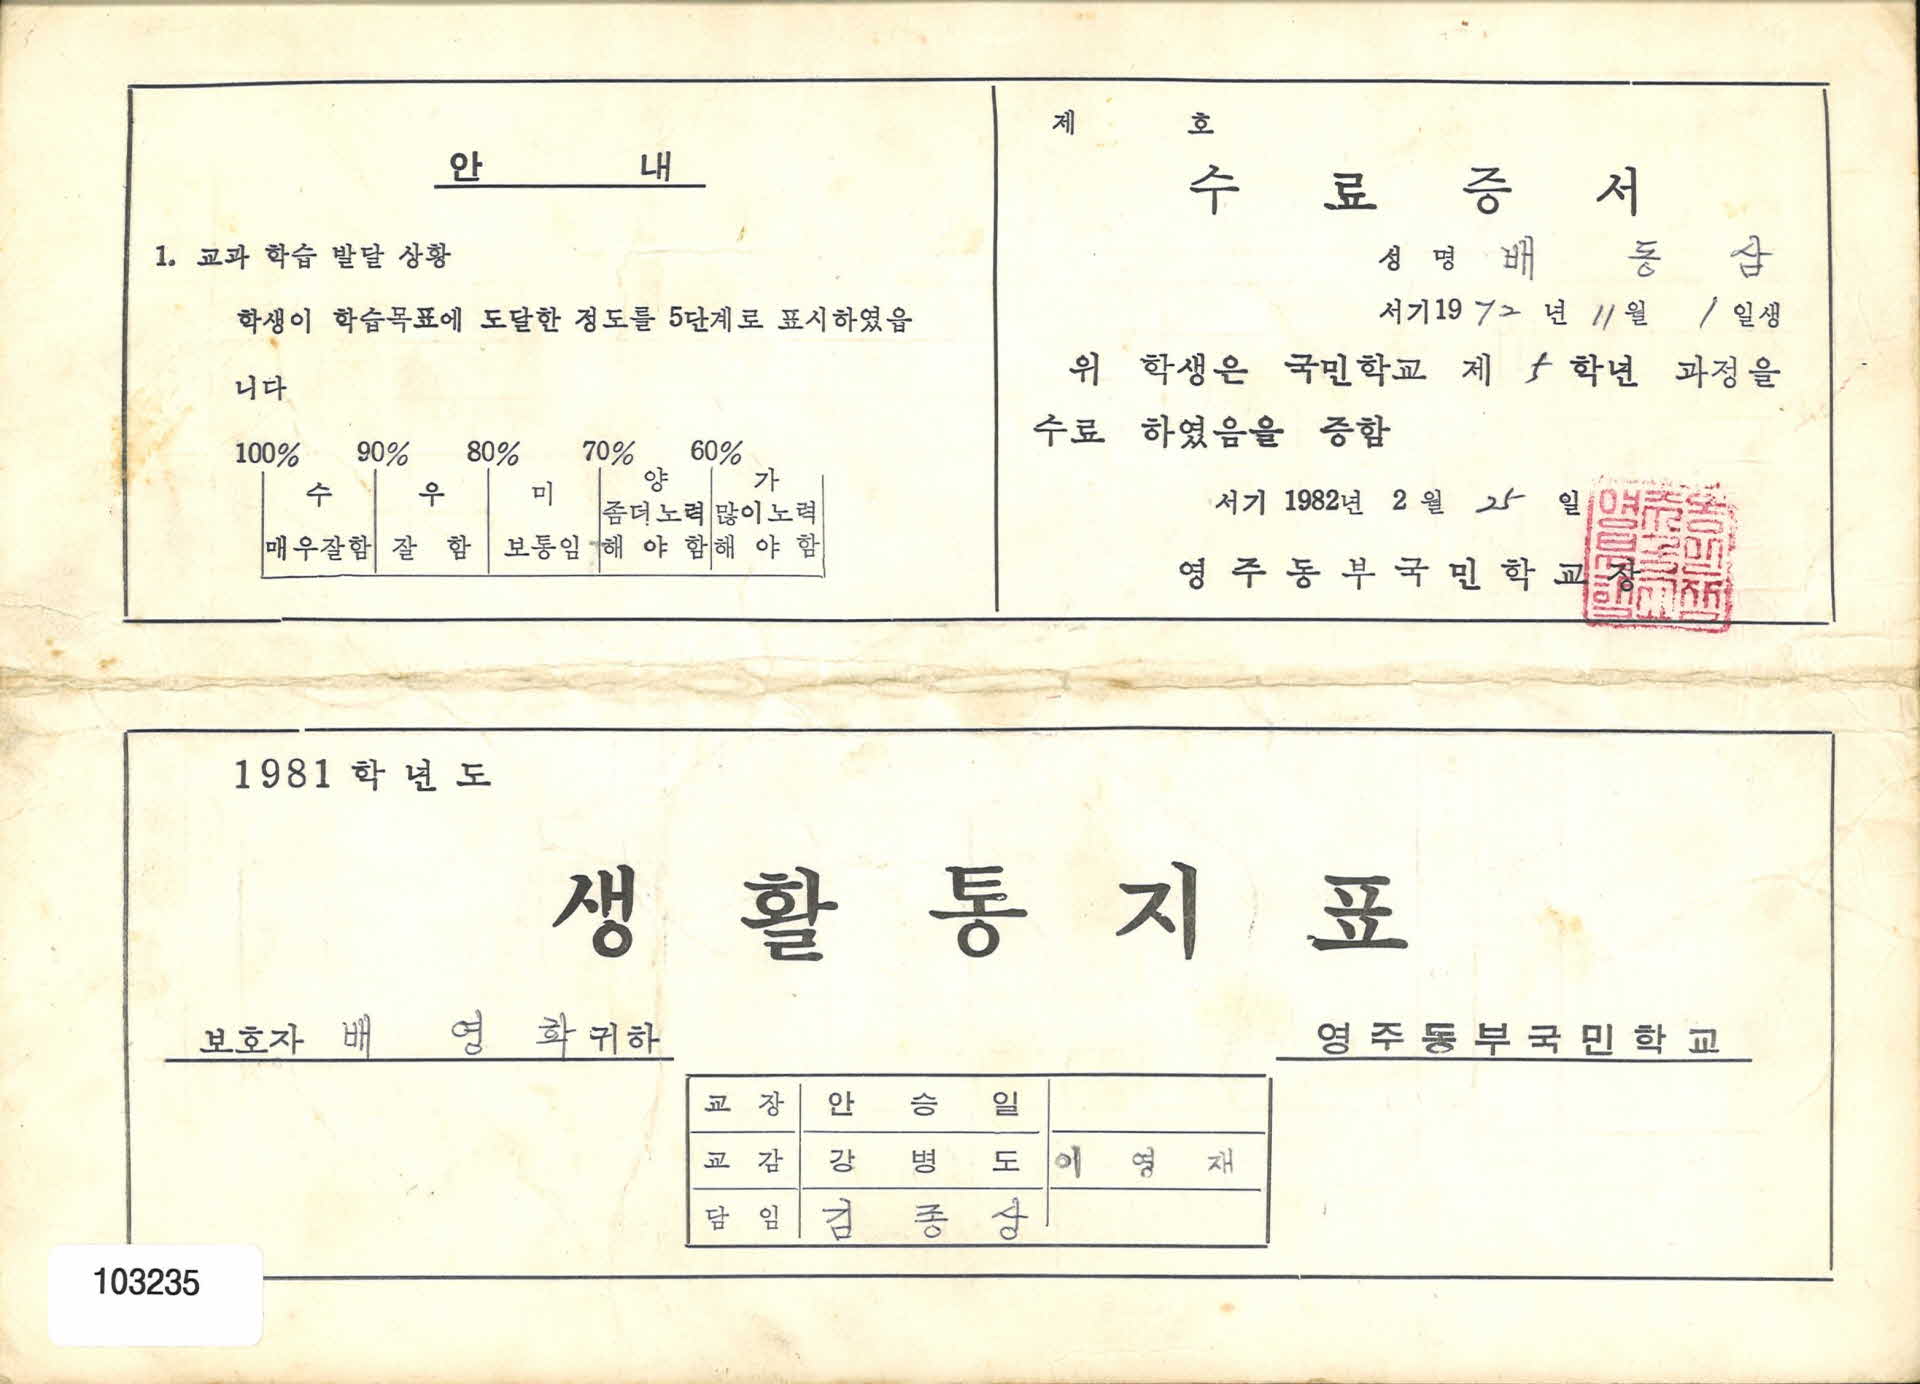 안 내
1. 교과 학습 발달 상황
학생이 학습목표에 도달한 정도를 5단계로 표시하였읍
니다
100% 90% 80% 70% 60%
수 우 미 양 가
매우잘함 잘 함 보통임 좀더노력해 야 함 많이노력해 야 함
제 호
수 료 증 서
성 명 배 동 삼
서기1972년 11월 1일생
위 학생은 국민학교 제 5 학년 과정을
수료 하였음을 증함
서기 1982년 2월 25일
영주동부국민학교장
1981학년도
생 활 통 지 표
보호자 배 영 학 귀하
영주동부국민학교
교 장 안 승 일
교 감 강 병 도 이 영 재
담 임 김 종 상
103235